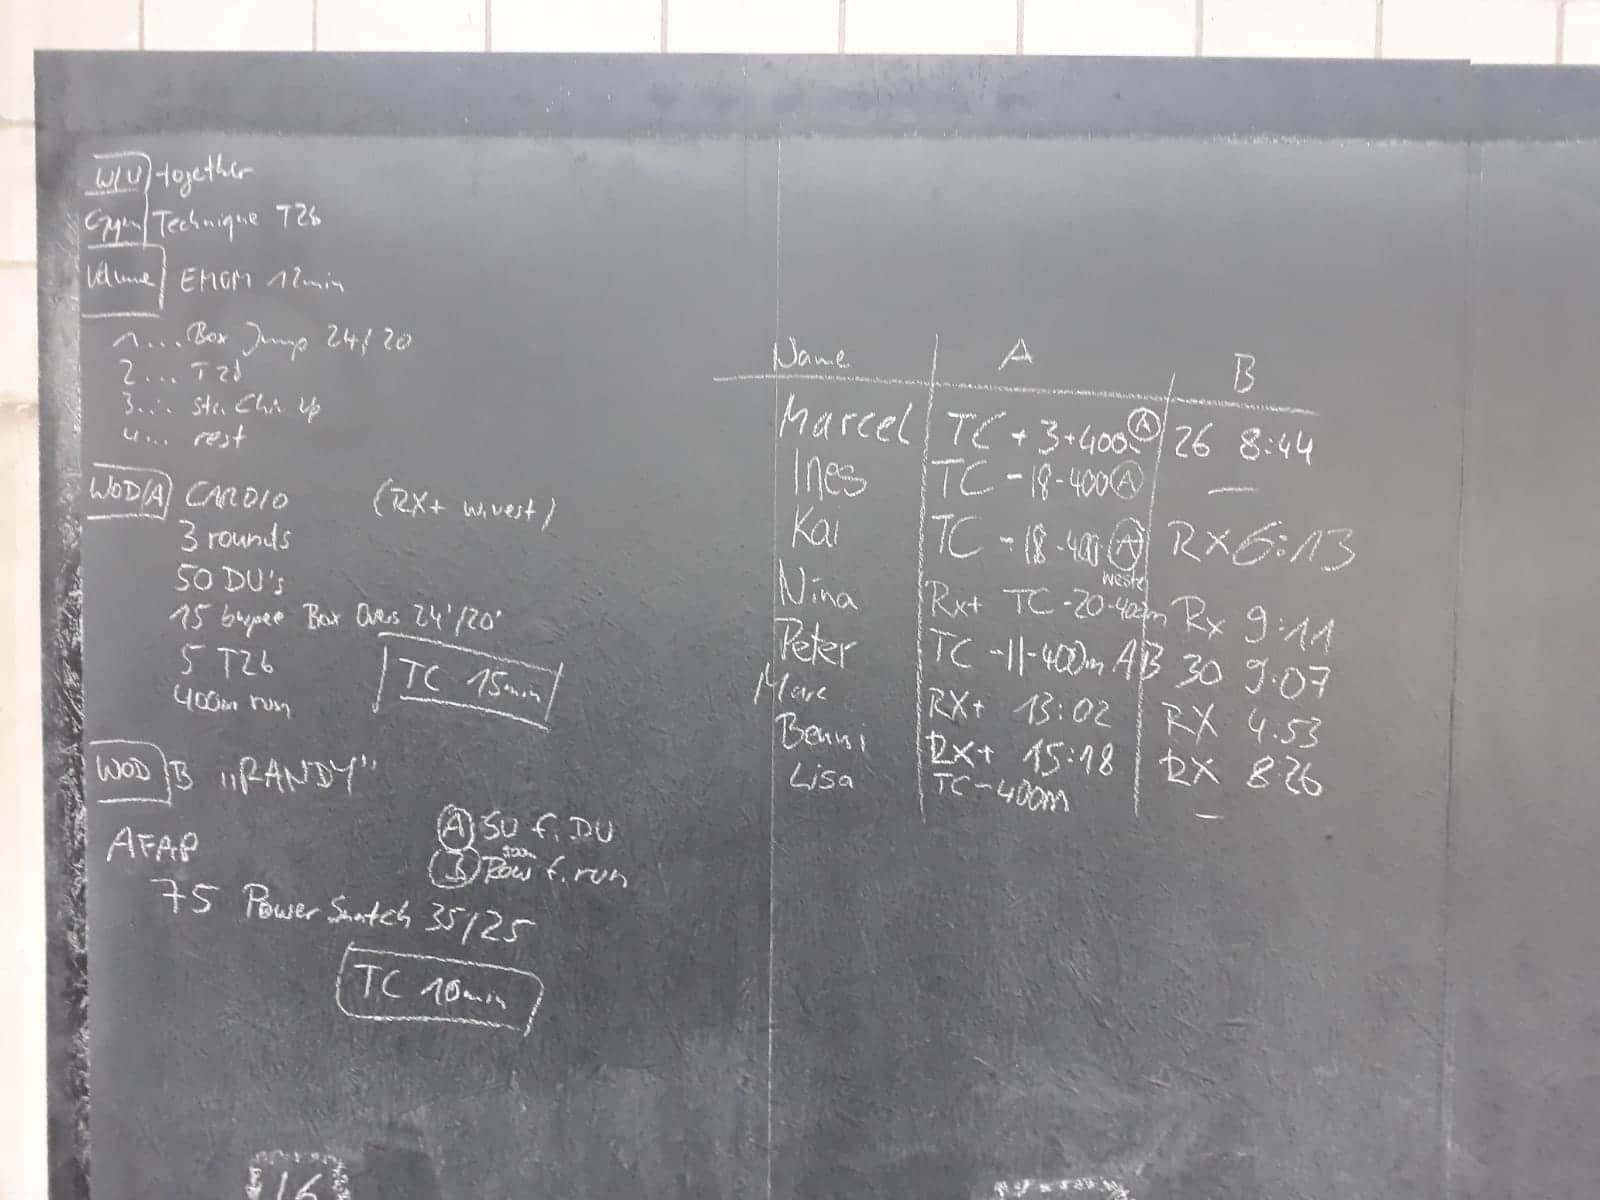 W/U together
Gym Technique T2b
Volume EMOM 12min
1... Box Jump 24/20
2... T2b
3... Chin Up
4... rest
WOD(A) CARDIO (RX+ w.vest)
3 rounds
50 DU's
15 burpee Box Overs 24'/20'
5 T2b
400m run
TC 15min
WOD B „RANDY"
AFAP
75 Power Snatch 35/25
TC 10min
(A) SU f. DU
(B) Row f. run
500m
Name A B
Marcel TC + 3+400 (A) 26 8:44
Ines TC -18-400 (A) —
Kai TC -18-400 (A) RX 6:13
Nina Rx+ TC -20-400m Rx 9:11
weste
Peter TC -11-400m AB 30 9:07
Marc RX+ 13:02 RX 4:53
Benni RX+ 15:18 RX 826
Lisa TC-400m —
16